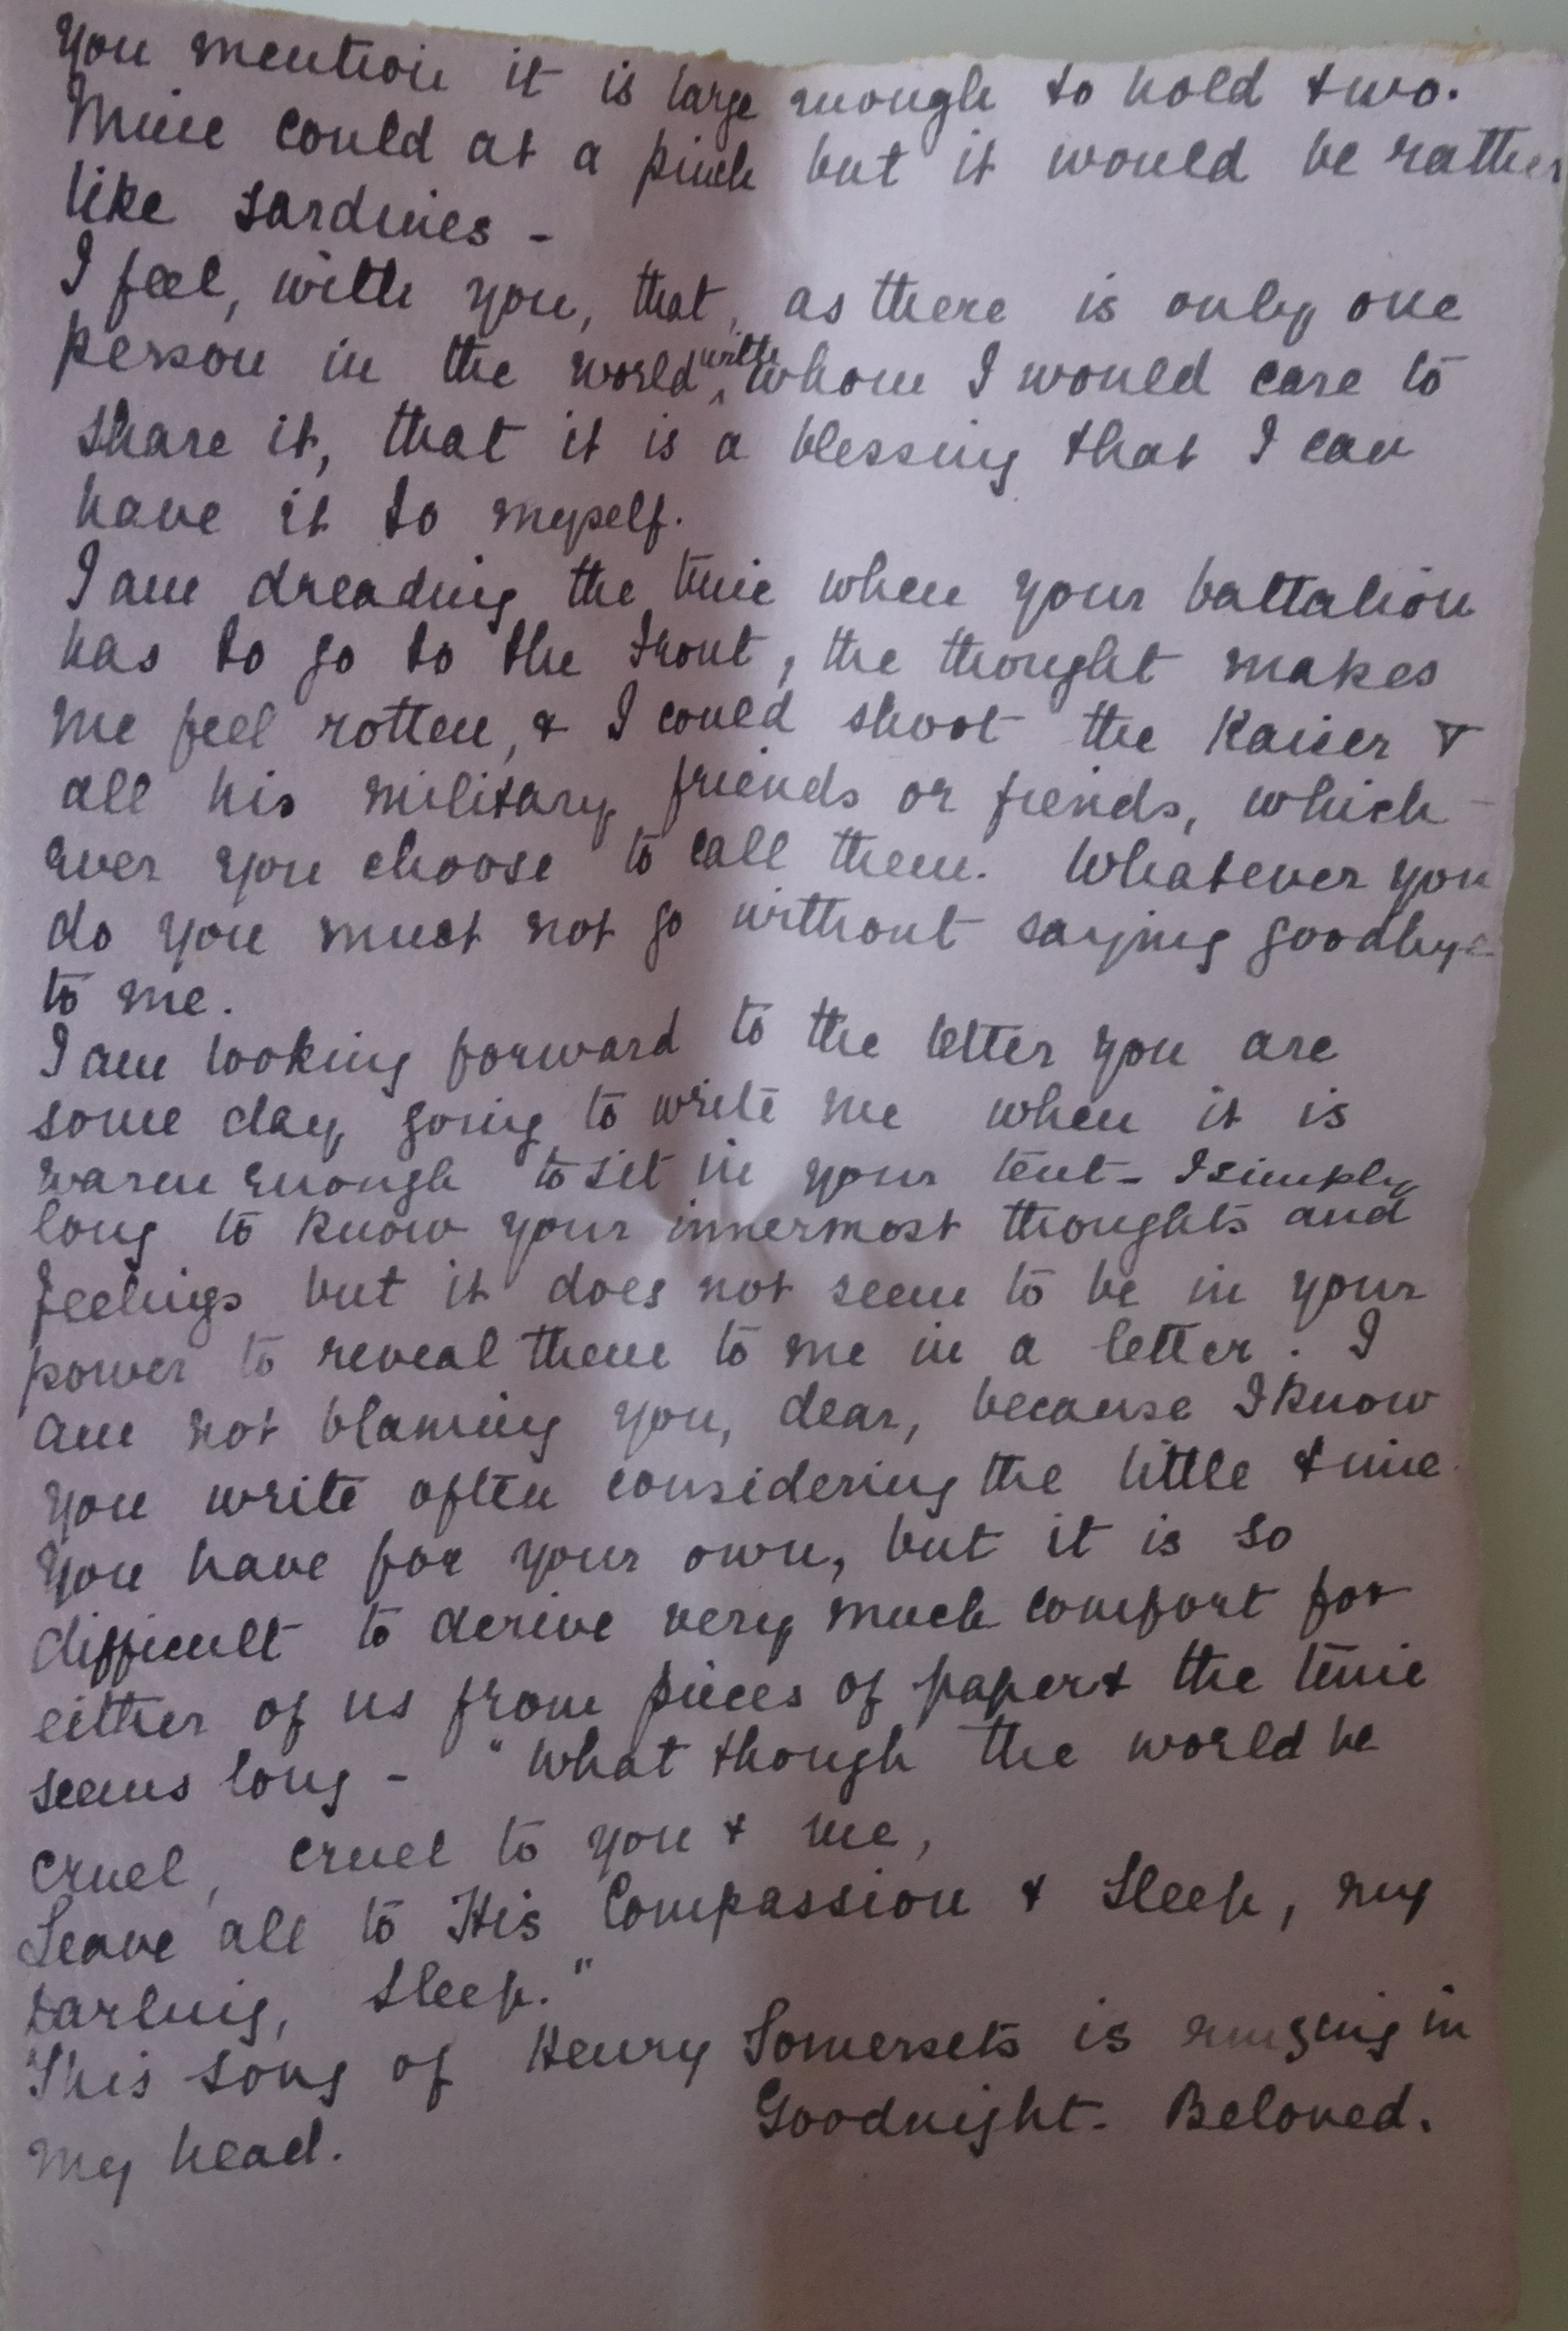 you mention it is large enough to hold two.
Mine could at a pinch but it would be rather
like sardines -
I feel, with you, that, as there is only one
person in the world with whom I would care to
share it, that it is a blessing that I can
have it to myself.
I am dreading the time when your battalion
has to go to the front, the thought makes
me feel rotten, & I could shoot the Kaiser &
all his military friends or fiends, which-
ever you choose to call them. Whatever you
do you must not go without saying goodbye
to me.
I am looking forward to the letter you are
some day going to write me when it is
warm enough to sit in your tent - I simply
long to know your innermost thoughts and
feelings but it does not seem to be in your
power to reveal them to me in a letter. I
am not blaming you, dear, because I know
you write often considering the little time
you have for your own, but it is so
difficult to derive very much comfort for
either of us from pieces of paper & the time
seems long - "What though the world be
cruel, cruel to you & me,
Leave all to His Compassion & Sleep, my
darling, Sleep."
This song of Henry Somersets is ringing in
my head.
Goodnight. Beloved.